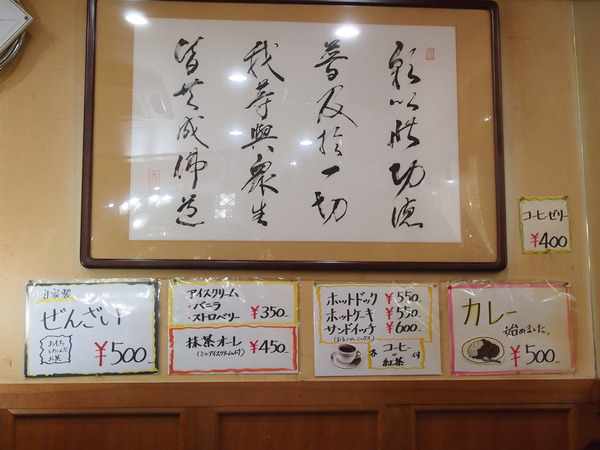 願以此功徳
普及於一切
我等與衆生
皆共成佛道
コーヒーゼリー
¥400
自家製
ぜんざい
おもち
お茶
¥500
アイスクリーム
・バニラ
・ストロベリー ¥350-
抹茶オーレ ¥450-
(ミニアイスクリーム付)
ホットドック ¥550-
ホットケーキ ¥550
サンドイッチ ¥600-
コーヒー
or
紅茶
付
カレー
始めました。
¥500-